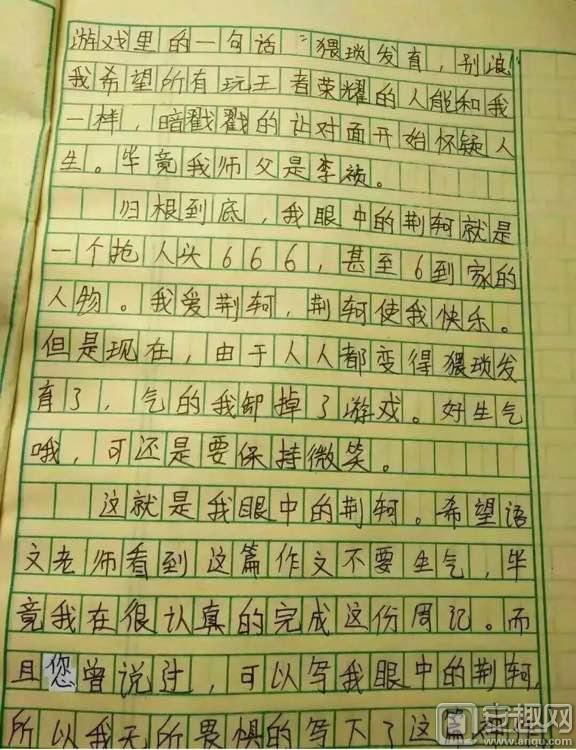 游戏里的一句话“猥琐发育,别浪
我希望所有玩王者荣耀的人能和我
一样,暗戳戳的让对面开始怀疑人
生。毕竟我师父是李祯。
归根到底,我眼中的荆轲就是
一个抢人头666,甚至6到家的
人物。我爱荆轲,荆轲使我快乐。
但是现在,由于人人都变得猥琐发
育了,气的我卸掉了游戏。好生气
哦,可还是要保持微笑。
这就是我眼中的荆轲。希望语
文老师看到这篇作文不要生气,毕
竟我在很认真的完成这份周记。而
且您曾说过,可以写我眼中的荆轲,
所以我无所畏惧的写下了这篇
安趣网
www.anqu.com